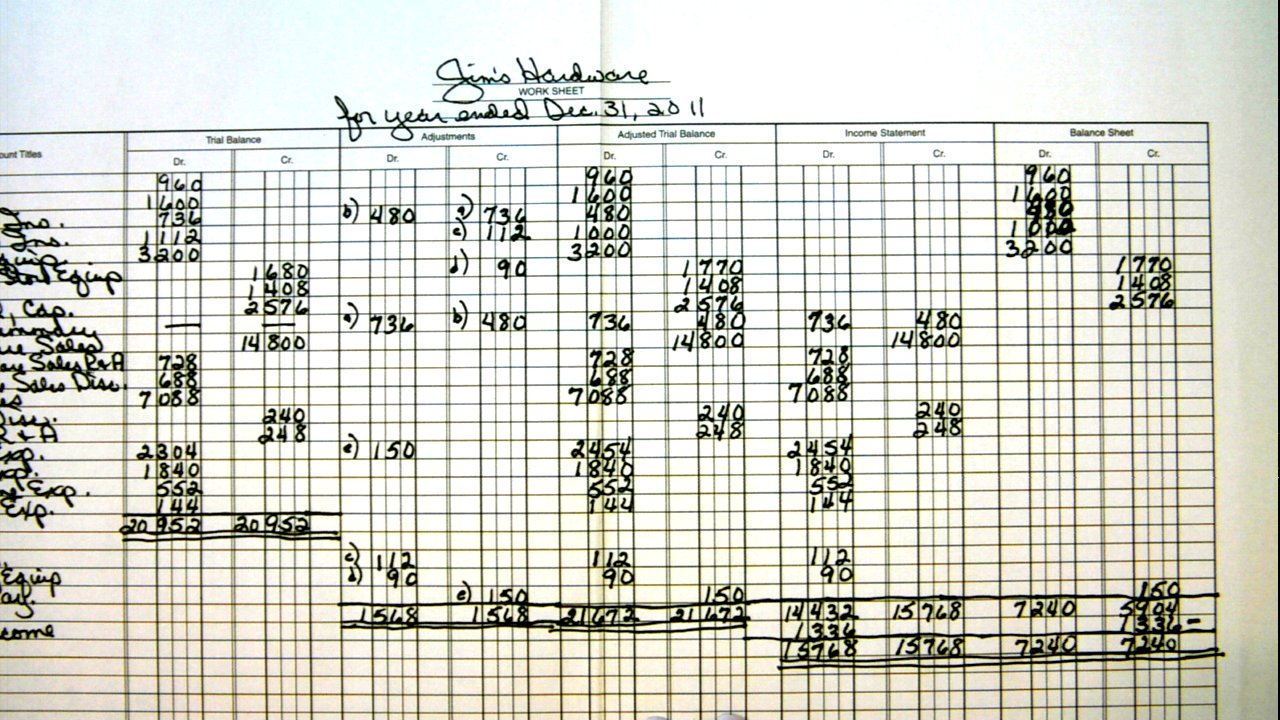 Jim's Hardware
WORK SHEET
for year ended Dec. 31, 2011
ount Titles Trial Balance Adjustments Adjusted Trial Balance Income Statement Balance Sheet
Dr. Cr. Dr. Cr. Dr. Cr. Dr. Cr. Dr. Cr.
960 960 960
1600 1600 1600
Ins. 736 b) 480 a) 736 480 480
Ins. 1112 c) 112 1000 1000
quip. 3200 3200 3200
Store Equip 1680 d) 90 1770 1770
1408 1408 1408
Cap. 2576 2576 2576
ummary — — a) 736 b) 480 736 480 736 480
are Sales 14800 14800 14800
are Sales R+A 728 728 728
Sales Disc. 688 688 688
es 7088 7088 7088
Disc. 240 240 240
R+A 248 248 248
Exp. 2304 e) 150 2454 2454
Exp. 1840 1840 1840
Exp. 552 552 552
Exp. 144 144 144
20952 20952
c) 112 112 112
Equip d) 90 90 90
ay. e) 150 150 150
1568 1568 21672 21672 14432 15768 7240 5904
come 1336 1336 -
15768 15768 7240 7240